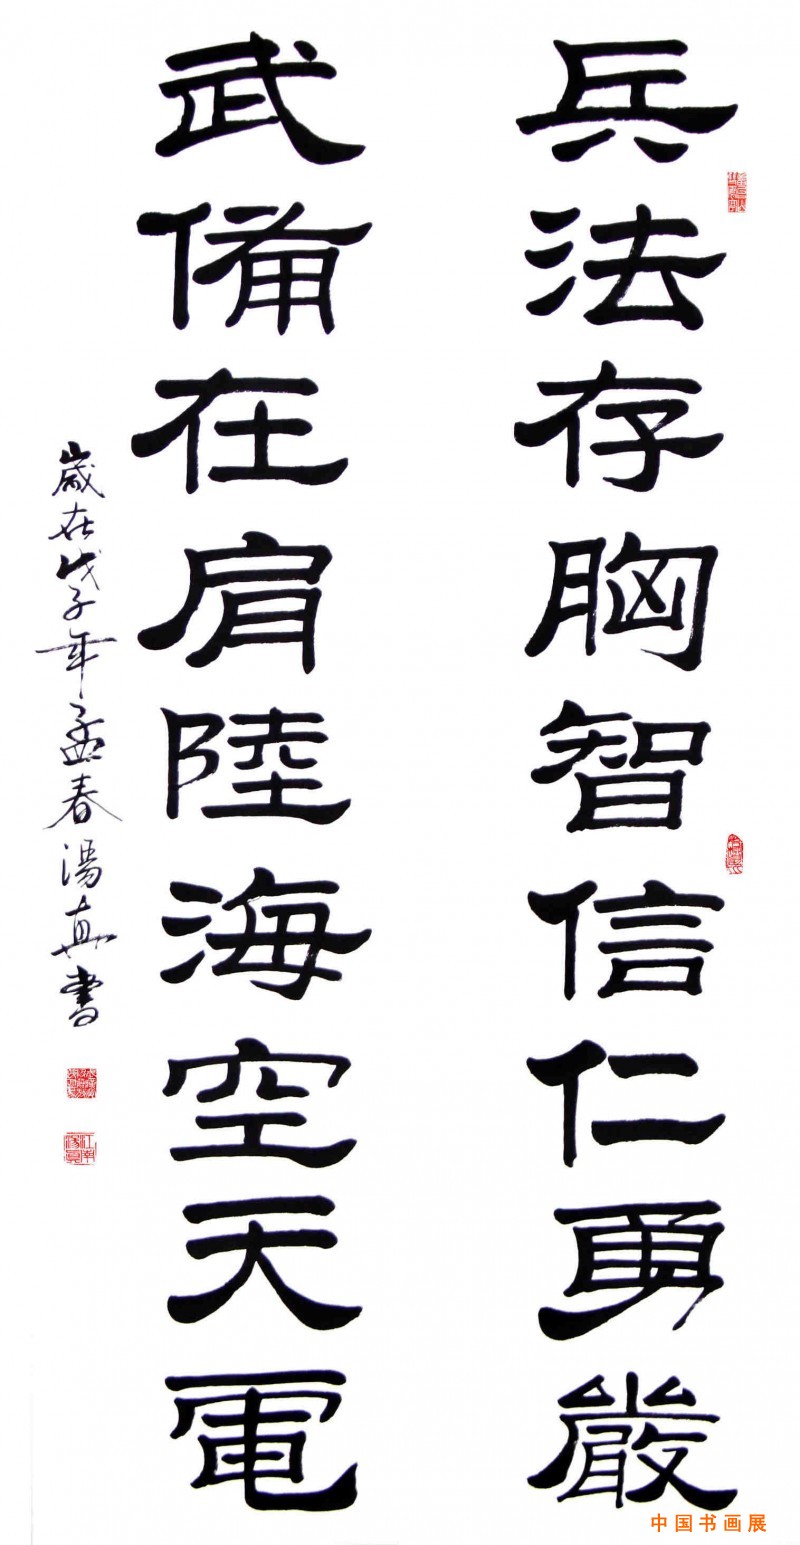 兵法存胸智信仁勇嚴
武備在肩陸海空天電
歲在戊子年孟春湯真書
中国书画展